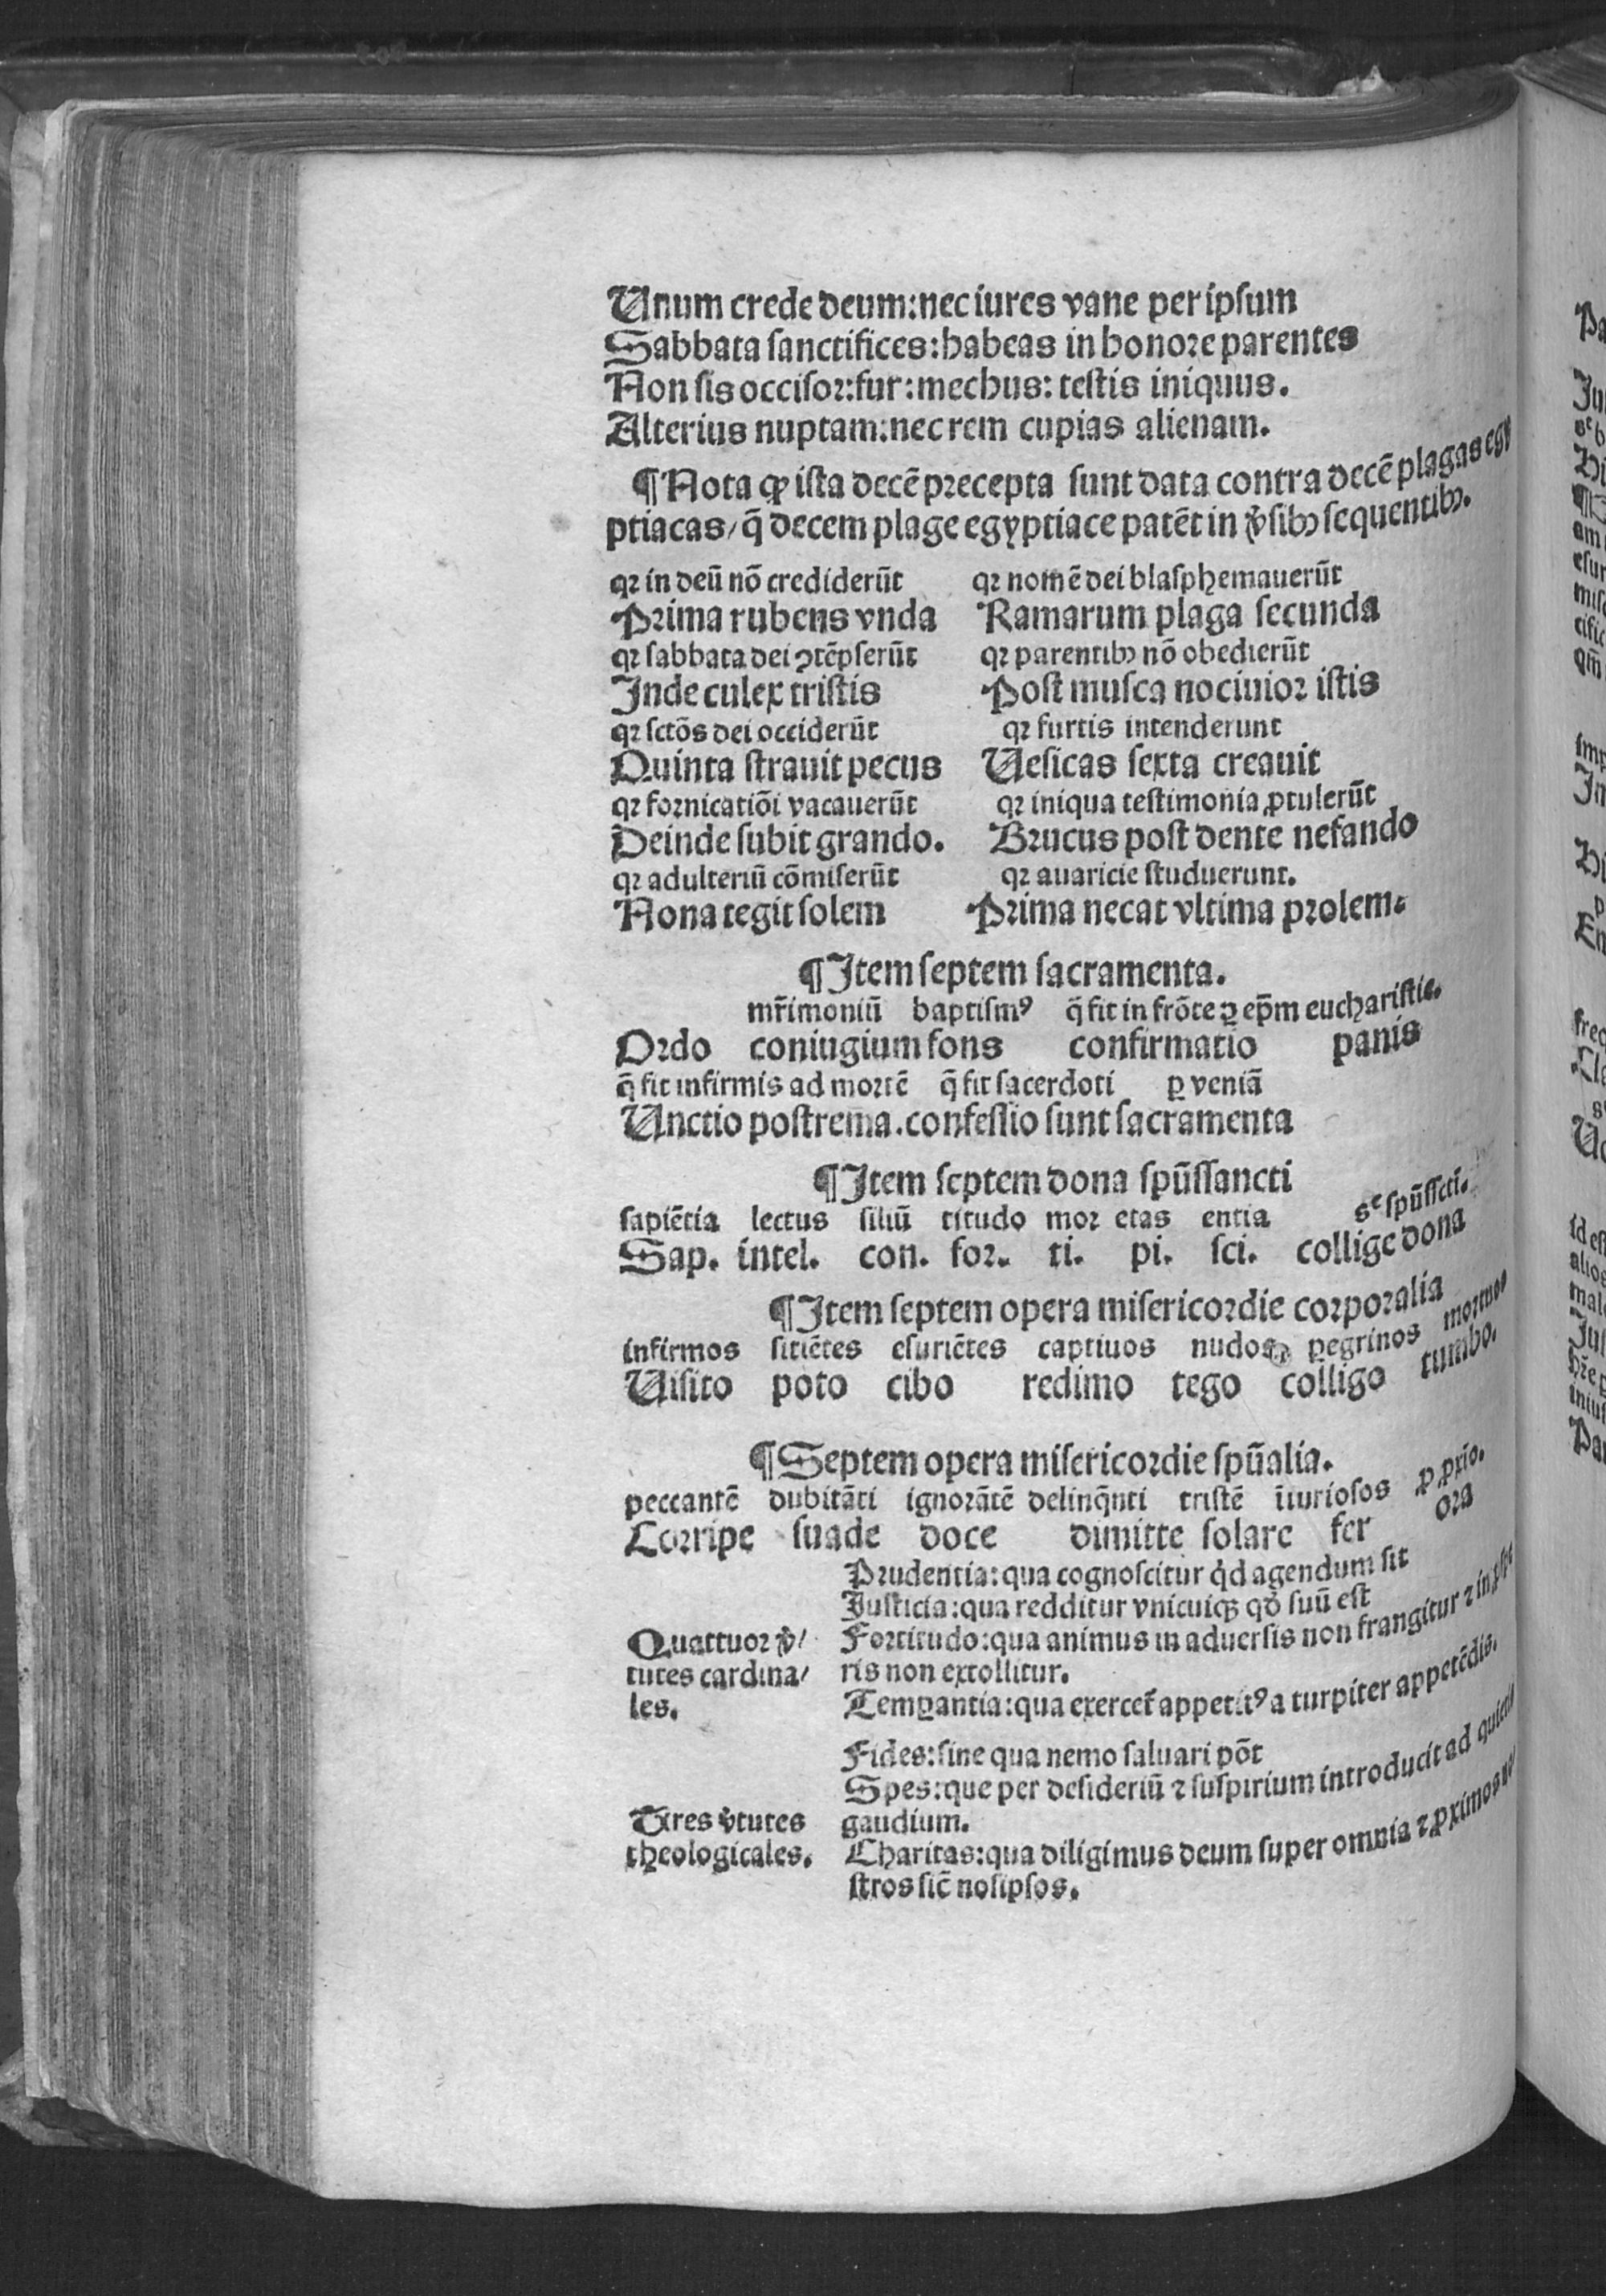 Unum crede deum: nec iures vane per ipsum
Sabbata ſanctifices: habeas in honore parentes
Non ſis occiſor: fur: mechus: teſtis iniquus.
Alterius nuptam: nec rem cupias alienam.
¶ Nota ꝙ iſta decē precepta ſunt data contra decē plagas egy
ptiacas/ q̄ decem plage egyptiace patēt in v̾ſibꝫ ſequentibꝫ.
qꝛ in deū nō crediderūt qꝛ nomē dei blaſphemauerūt
Prima rubens vnda Ramarum plaga ſecunda
qꝛ ſabbata dei ꝯtēpſerūt qꝛ parentibꝫ nō obedierūt
Inde culex triſtis Poſt muſca nociuior iſtis
qꝛ ſctōs dei occiderūt qꝛ furtis intenderunt
Quinta ſtrauit pecus Ueſicas ſexta creauit
qꝛ fornicatiōi vacauerūt qꝛ iniqua teſtimonia ꝓtulerūt
Deinde ſubit grando. Brucus poſt dente nefando
qꝛ adulteriū cōmiſerūt qꝛ auaricie ſtuduerunt.
Nona tegit ſolem Prima necat vltima prolem.
¶ Item ſeptem ſacramenta.
mr̄imoniū baptiſmꝰ q̄ fit in frōte ꝑ ep̄m euchariſtie.
Ordo coniugium fons confirmatio panis
q̄ fit infirmis ad mortē q̄ fit ſacerdoti ꝑ veniā
Unctio poſtrema. confeſſio ſunt ſacramenta
¶ Item ſeptem dona ſpūſſancti
ſapiētia lectus ſiliū titudo mor etas entia sᶜ ſpūſſcti.
Sap. intel. con. for. ti. pi. ſci. collige dona
¶ Item ſeptem opera miſericordie corporalia
infirmos ſitiētes eſuriētes captiuos nudos ꝑegrinos mortuos
Uiſito poto cibo redimo tego colligo tumbo.
¶ Septem opera miſericordie ſpūalia.
peccantē dubitāti ignorātē delinq̄nti triſtē īiurioſos ꝓ ꝓxio.
Corripe ſuade doce dimitte ſolare fer ora
Prudentia: qua cognoſcitur qd̾ agendum ſit
Iuſticia: qua redditur vnicuiqꝫ qḋ ſuū eſt
Quattuor v̾/ Fortitudo: qua animus in aduerſis non frangitur ⁊ in ꝓſpe
tutes cardina/ ris non extollitur.
les. Temꝑantia: qua exercet̄ appetitꝰ a turpiter appetēdis.
Fides: ſine qua nemo ſaluari pōt
Spes: que per deſideriū ⁊ ſuſpirium introducit ad
Tres v̾tutes gaudium.
theologicales. Charitas: qua diligimus deum ſuper omnia ⁊ ꝓximos no/
ſtros ſic̄ noſipſos.